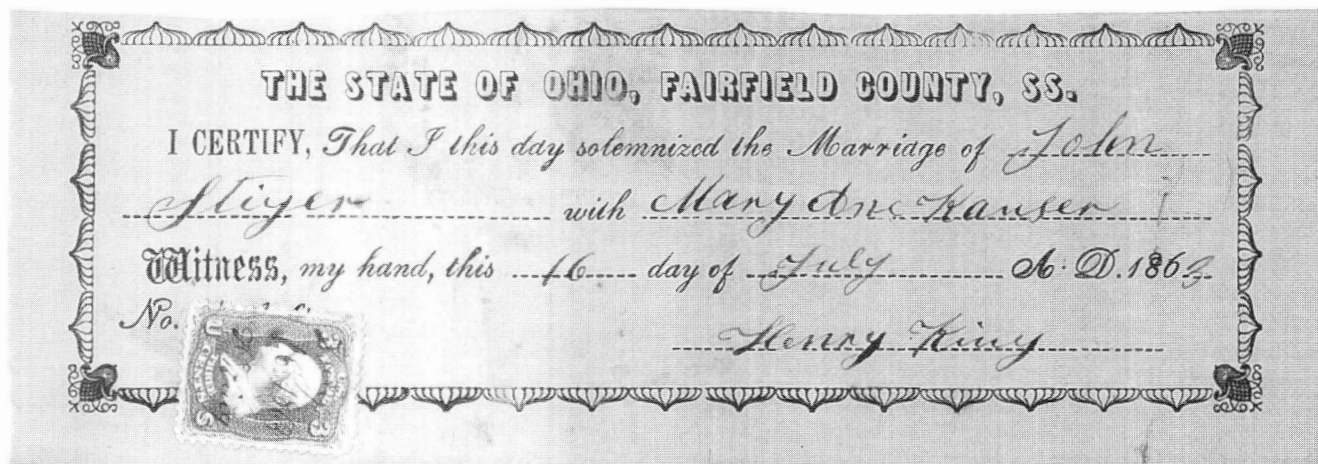 THE STATE OF OHIO, FAIRFIELD COUNTY, SS.
I CERTIFY, That I this day solemnized the Marriage of John
Stiger with Mary Ane Kauser
Witness, my hand, this 16 day of July A. D. 1863
No.
Henry King